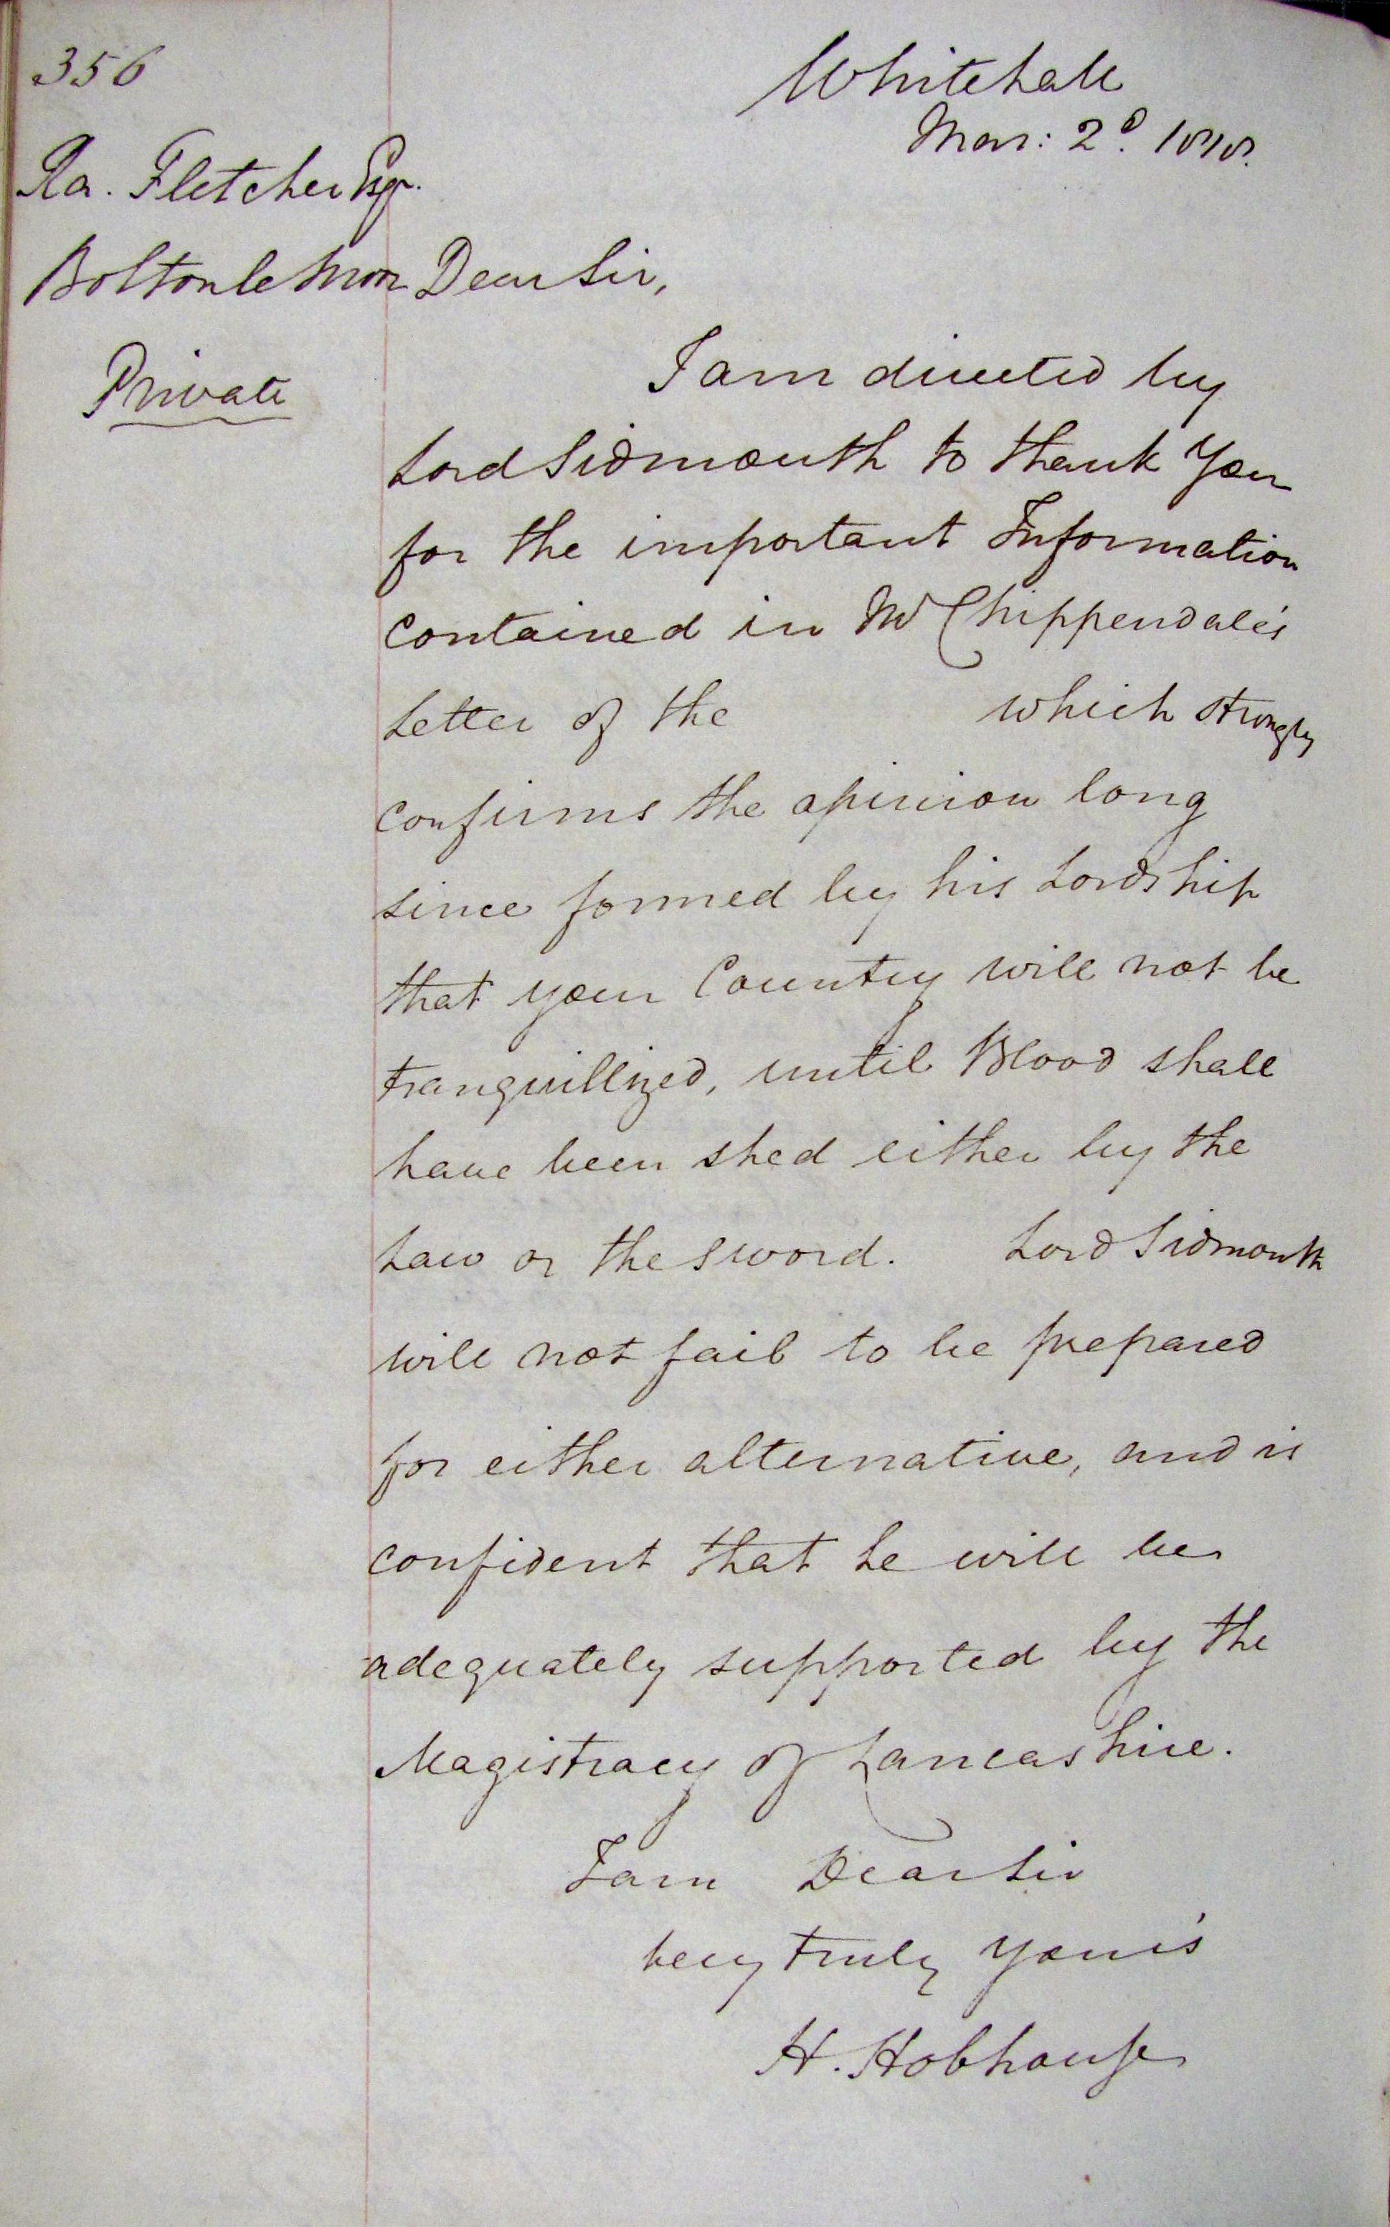 356
Whitehall
Mar: 2d. 1818.
Ra. Fletcher Esqr.
Bolton le Moor
Dear Sir,
Private
I am directed by
Lord Sidmouth to thank You
for the important Information
contained in Mr Chippendale's
Letter of the which strongly
confirms the opinion long
since formed by his Lordship
that your Country will not be
tranquillized, until Blood shall
have been shed either by the
Law or the sword. Lord Sidmouth
will not fail to be prepared
for either alternative, and is
confident that he will be
adequately supported by the
Magistracy of Lancashire.
I am Dear Sir
very truly Your's
H. Hobhouse